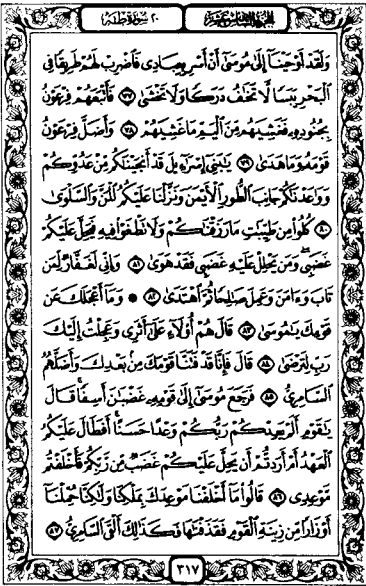 الجزء السادس عشر
٢٠ سورة طه
وَلَقَدْ أَوْحَيْنَآ إِلَىٰ مُوسَىٰٓ أَنْ أَسْرِ بِعِبَادِى فَٱضْرِبْ لَهُمْ طَرِيقًا فِى
ٱلْبَحْرِ يَبَسًا لَّا تَخَٰفُ دَرَكًا وَلَا تَخْشَىٰ ٧٧ فَأَتْبَعَهُمْ فِرْعَوْنُ
بِجُنُودِهِۦ فَغَشِيَهُم مِّنَ ٱلْيَمِّ مَا غَشِيَهُمْ ٧٨ وَأَضَلَّ فِرْعَوْنُ
قَوْمَهُۥ وَمَا هَدَىٰ ٧٩ يَٰبَنِىٓ إِسْرَٰٓءِيلَ قَدْ أَنجَيْنَٰكُم مِّنْ عَدُوِّكُمْ
وَوَٰعَدْنَٰكُمْ جَانِبَ ٱلطُّورِ ٱلْأَيْمَنَ وَنَزَّلْنَا عَلَيْكُمُ ٱلْمَنَّ وَٱلسَّلْوَىٰ
٨٠ كُلُوا۟ مِن طَيِّبَٰتِ مَا رَزَقْنَٰكُمْ وَلَا تَطْغَوْا۟ فِيهِ فَيَحِلَّ عَلَيْكُمْ
غَضَبِى وَمَن يَحْلِلْ عَلَيْهِ غَضَبِى فَقَدْ هَوَىٰ ٨١ وَإِنِّى لَغَفَّارٌ لِّمَن
تَابَ وَءَامَنَ وَعَمِلَ صَٰلِحًا ثُمَّ ٱهْتَدَىٰ ٨٢ ۞ وَمَآ أَعْجَلَكَ عَن
قَوْمِكَ يَٰمُوسَىٰ ٨٣ قَالَ هُمْ أُو۟لَآءِ عَلَىٰٓ أَثَرِى وَعَجِلْتُ إِلَيْكَ
رَبِّ لِتَرْضَىٰ ٨٤ قَالَ فَإِنَّا قَدْ فَتَنَّا قَوْمَكَ مِنۢ بَعْدِكَ وَأَضَلَّهُمُ
ٱلسَّامِرِىُّ ٨٥ فَرَجَعَ مُوسَىٰٓ إِلَىٰ قَوْمِهِۦ غَضْبَٰنَ أَسِفًا قَالَ
يَٰقَوْمِ أَلَمْ يَعِدْكُمْ رَبُّكُمْ وَعْدًا حَسَنًا أَفَطَالَ عَلَيْكُمُ
ٱلْعَهْدُ أَمْ أَرَدتُّمْ أَن يَحِلَّ عَلَيْكُمْ غَضَبٌ مِّن رَّبِّكُمْ فَأَخْلَفْتُم
مَّوْعِدِى ٨٦ قَالُوا۟ مَآ أَخْلَفْنَا مَوْعِدَكَ بِمَلْكِنَا وَلَٰكِنَّا حُمِّلْنَآ
أَوْزَارًا مِّن زِينَةِ ٱلْقَوْمِ فَقَذَفْنَٰهَا فَكَذَٰلِكَ أَلْقَى ٱلسَّامِرِىُّ ٨٧
٣١٧